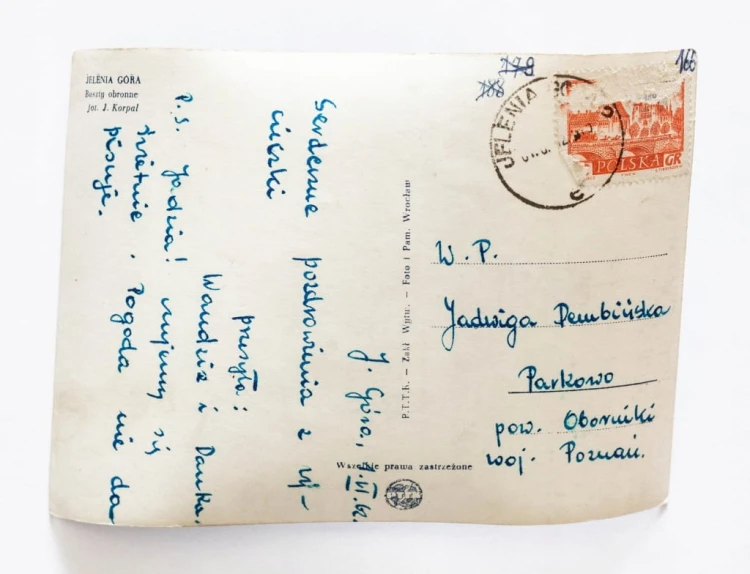 JELENIA GÓRA
Baszty obronne
fot. J. Korpal
J. Góra, 7.VI.62.
Serdeczne pozdrowienia z wy-
cieczki
przesyła:
Wandzia i Danka.
P.S. Jadzia! czujemy się
świetnie. Pogoda nie da
pisuje.
P.T.T.K. – Zakł. Wytw. – Foto i Pam. Wrocław
Wszelkie prawa zastrzeżone
179
188
166
JELENIA
POLSKA GR
W. P.
Jadwiga Dembińska
Parkowo
pow. Oborniki
woj. Poznań.